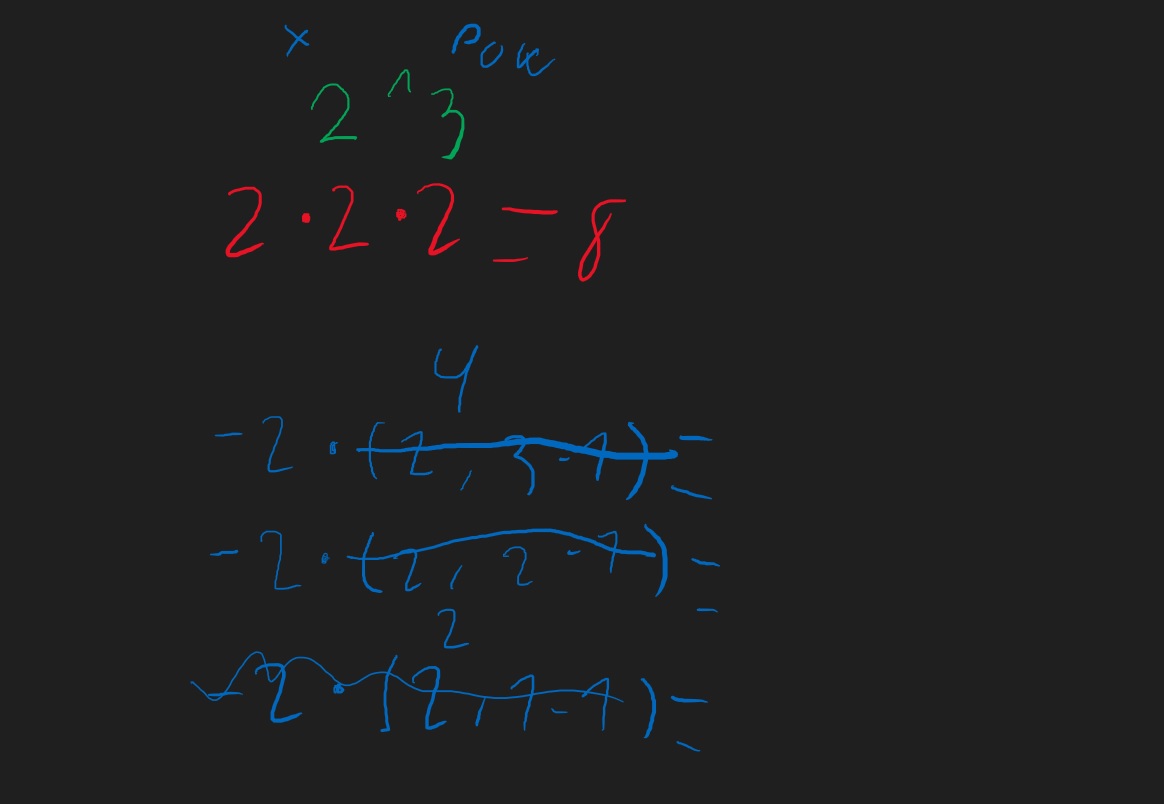 x pow
2 ^ 3
2 · 2 · 2 = 8
4
- 2 · (2, 3 - 1) =
- 2 · (2, 2 - 1) =
2
- 2 · (2, 1 - 1) =